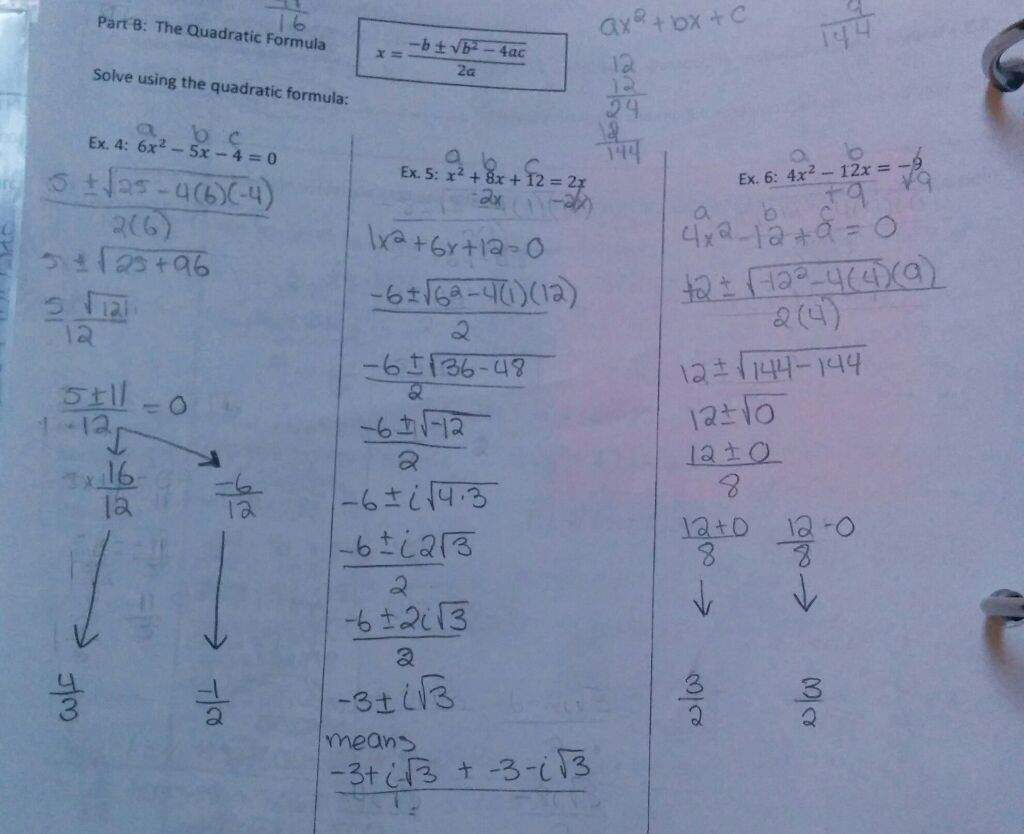 16
Part B: The Quadratic Formula
x = (-b ± √(b² - 4ac)) / 2a
ax² + bx + c
9/144
Solve using the quadratic formula:
12
12
24
12
144
a b c
Ex. 4: 6x² - 5x - 4 = 0
5 ± √25 - 4(6)(-4)
2(6)
5 ± √25 + 96
5 √121
12
5 ± 11 = 0
12
16
12
-6
12
4
3
-1
2
a b c
Ex. 5: x² + 8x + 12 = 2x
-2x -2x
1x² + 6x + 12 = 0
-6 ± √6² - 4(1)(12)
2
-6 ± √36 - 48
2
-6 ± √-12
2
-6 ± i√4·3
-6 ± i2√3
2
-6 ± 2i√3
2
-3 ± i√3
means
-3 + i√3 + -3 - i√3
a b
Ex. 6: 4x² - 12x = -9
+9 +9
a b c
4x² - 12 + 9 = 0
12 ± √-12² - 4(4)(9)
2(4)
12 ± √144 - 144
12 ± √0
12 ± 0
8
12 + 0
8
12 - 0
8
3
2
3
2